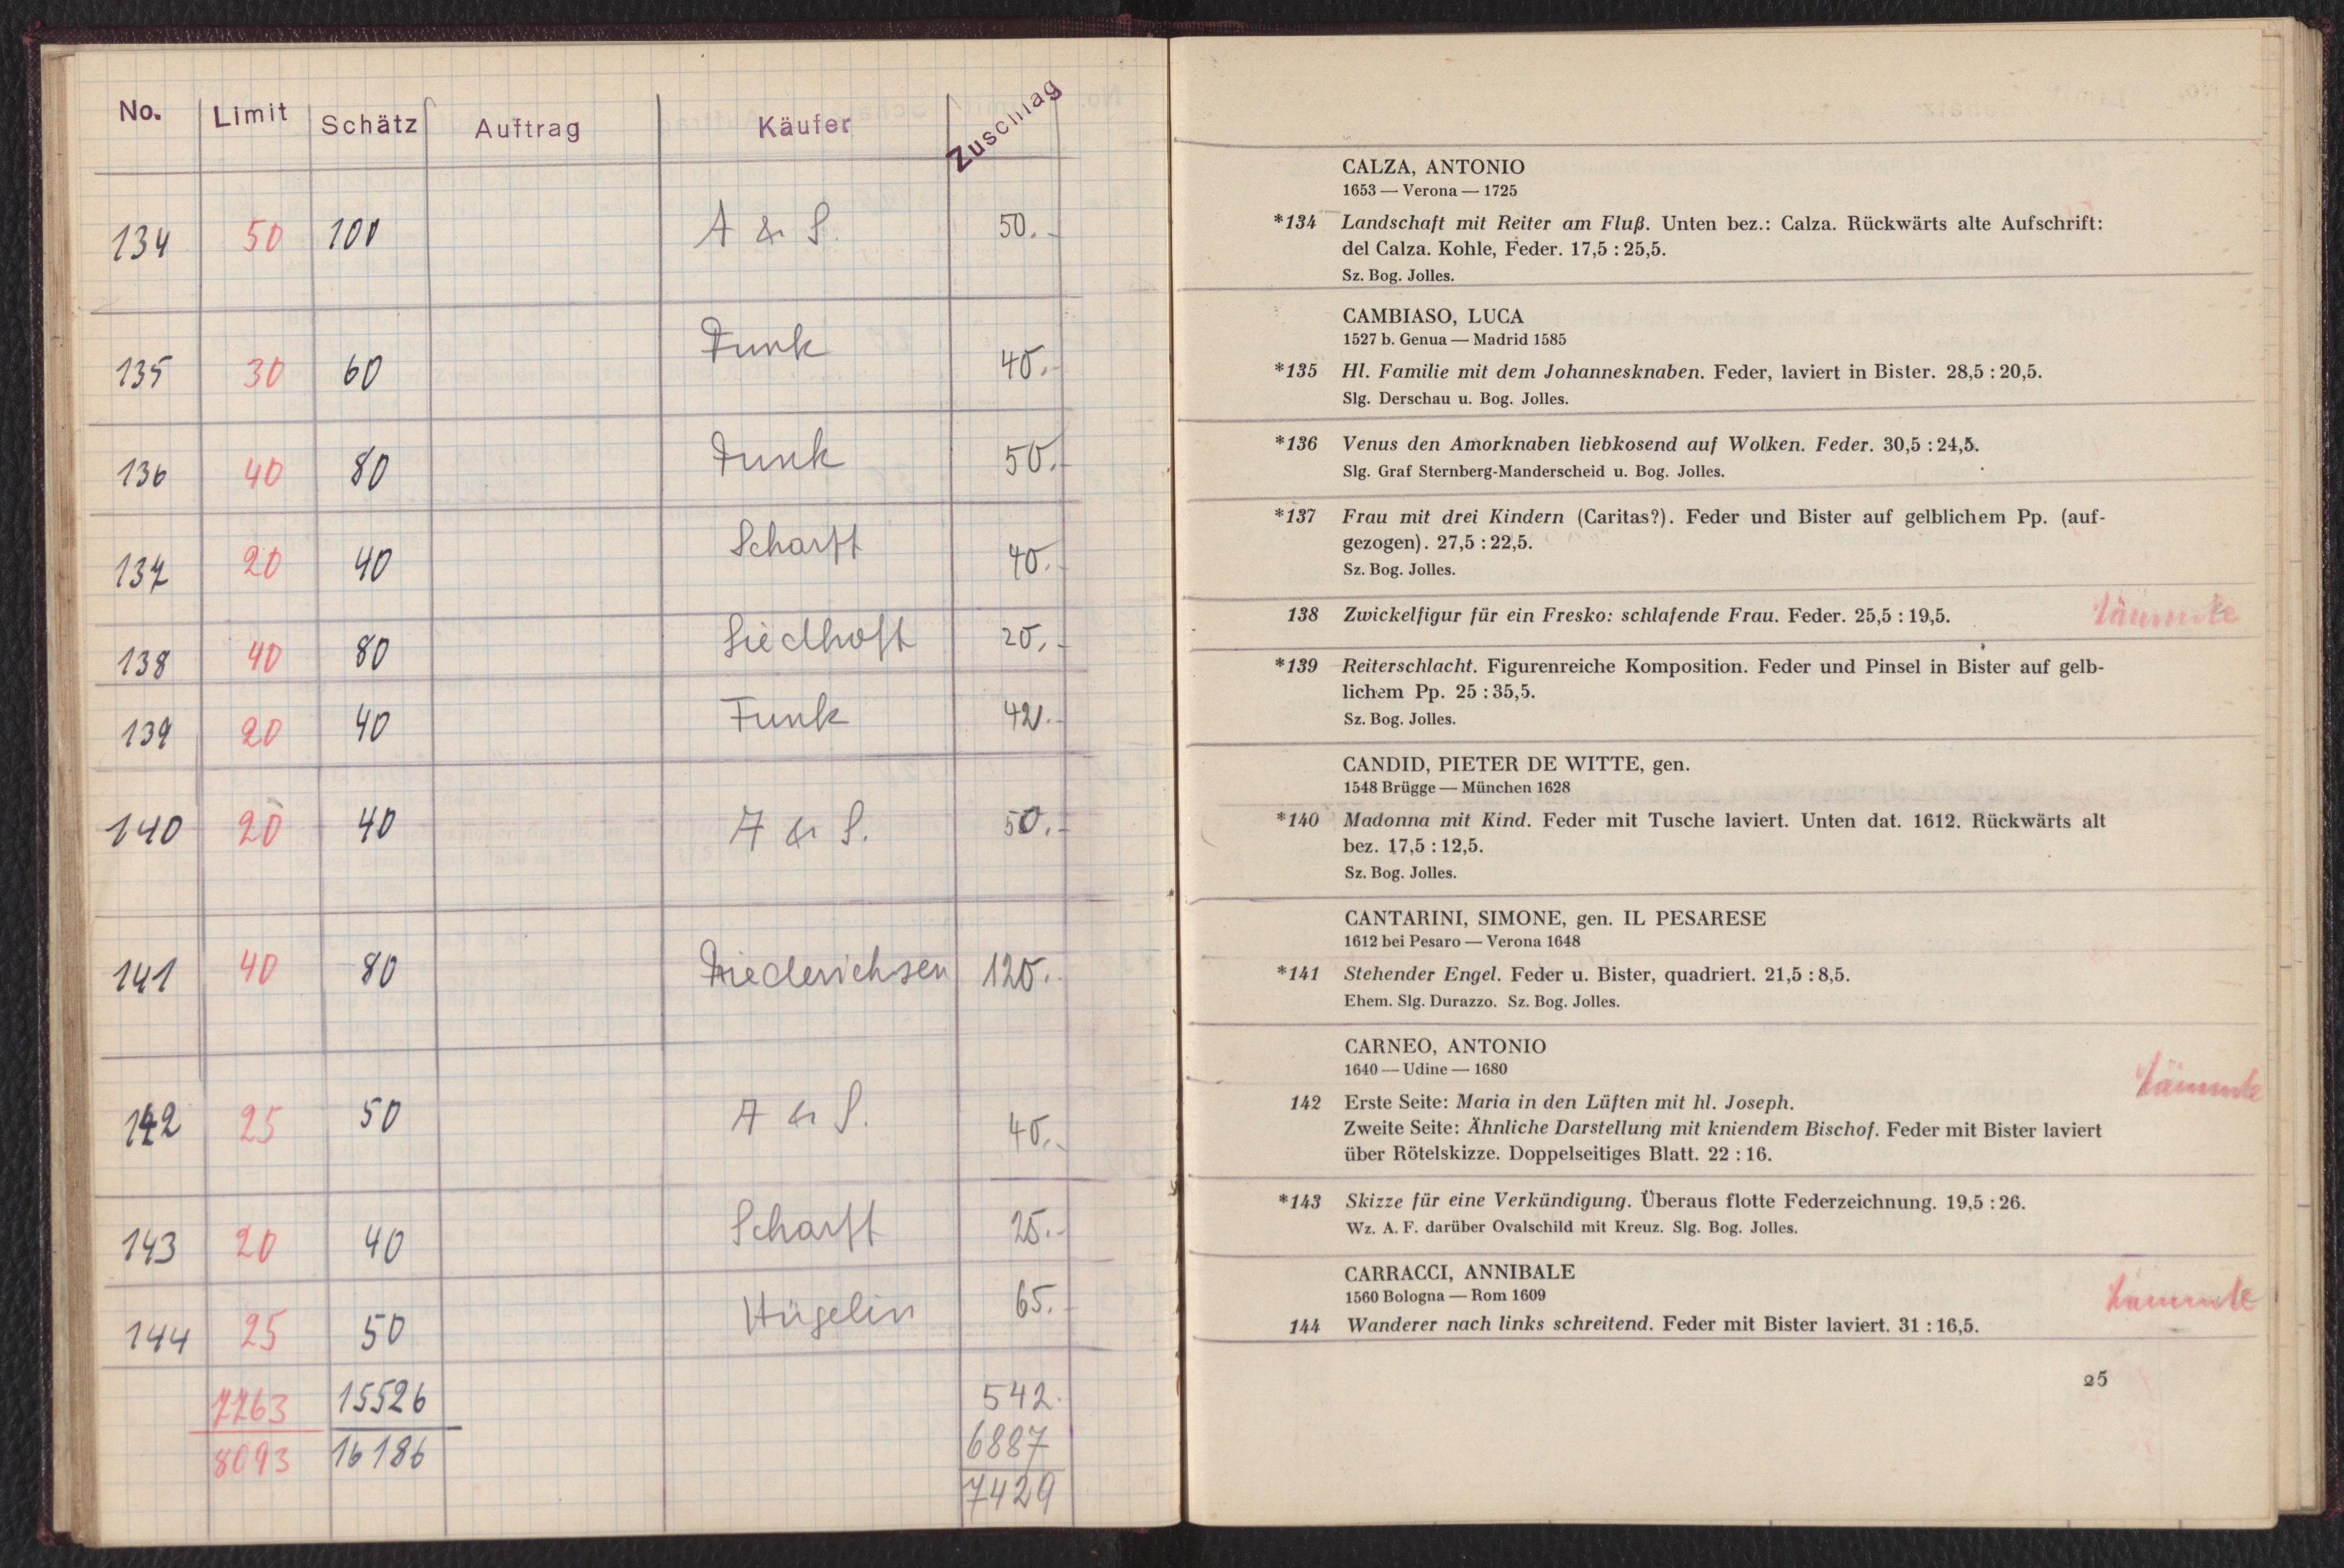 No. Limit Schätz Auftrag Käufer Zuschlag
134 50 100 A & S. 50.-
135 30 60 Funk 40.-
136 40 80 Funk 50.-
137 20 40 Scharff 40.-
138 40 80 Siedhoff 20.-
139 20 40 Funk 42.-
140 20 40 A & S. 50.-
141 40 80 Diederichsen 120.-
142 25 50 A & S. 40.-
143 20 40 Scharff 25.-
144 25 50 Hügelin 65.-
7763 15526 542.
6887
8093 16186
7429
CALZA, ANTONIO
1653 — Verona — 1725
*134 Landschaft mit Reiter am Fluß. Unten bez.: Calza. Rückwärts alte Aufschrift:
del Calza. Kohle, Feder. 17,5 : 25,5.
Sz. Bog. Jolles.
CAMBIASO, LUCA
1527 b. Genua — Madrid 1585
*135 Hl. Familie mit dem Johannesknaben. Feder, laviert in Bister. 28,5 : 20,5.
Slg. Derschau u. Bog. Jolles.
*136 Venus den Amorknaben liebkosend auf Wolken. Feder. 30,5 : 24,5.
Slg. Graf Sternberg-Manderscheid u. Bog. Jolles.
*137 Frau mit drei Kindern (Caritas?). Feder und Bister auf gelblichem Pp. (auf-
gezogen). 27,5 : 22,5.
Sz. Bog. Jolles.
138 Zwickelfigur für ein Fresko: schlafende Frau. Feder. 25,5 : 19,5. Lämmle
*139 Reiterschlacht. Figurenreiche Komposition. Feder und Pinsel in Bister auf gelb-
lichem Pp. 25 : 35,5.
Sz. Bog. Jolles.
CANDID, PIETER DE WITTE, gen.
1548 Brügge — München 1628
*140 Madonna mit Kind. Feder mit Tusche laviert. Unten dat. 1612. Rückwärts alt
bez. 17,5 : 12,5.
Sz. Bog. Jolles.
CANTARINI, SIMONE, gen. IL PESARESE
1612 bei Pesaro — Verona 1648
*141 Stehender Engel. Feder u. Bister, quadriert. 21,5 : 8,5.
Ehem. Slg. Durazzo. Sz. Bog. Jolles.
CARNEO, ANTONIO
1640 — Udine — 1680
Lämmle
142 Erste Seite: Maria in den Lüften mit hl. Joseph.
Zweite Seite: Ähnliche Darstellung mit kniendem Bischof. Feder mit Bister laviert
über Rötelskizze. Doppelseitiges Blatt. 22 : 16.
*143 Skizze für eine Verkündigung. Überaus flotte Federzeichnung. 19,5 : 26.
Wz. A. F. darüber Ovalschild mit Kreuz. Slg. Bog. Jolles.
CARRACCI, ANNIBALE
1560 Bologna — Rom 1609
Lämmle
144 Wanderer nach links schreitend. Feder mit Bister laviert. 31 : 16,5.
25